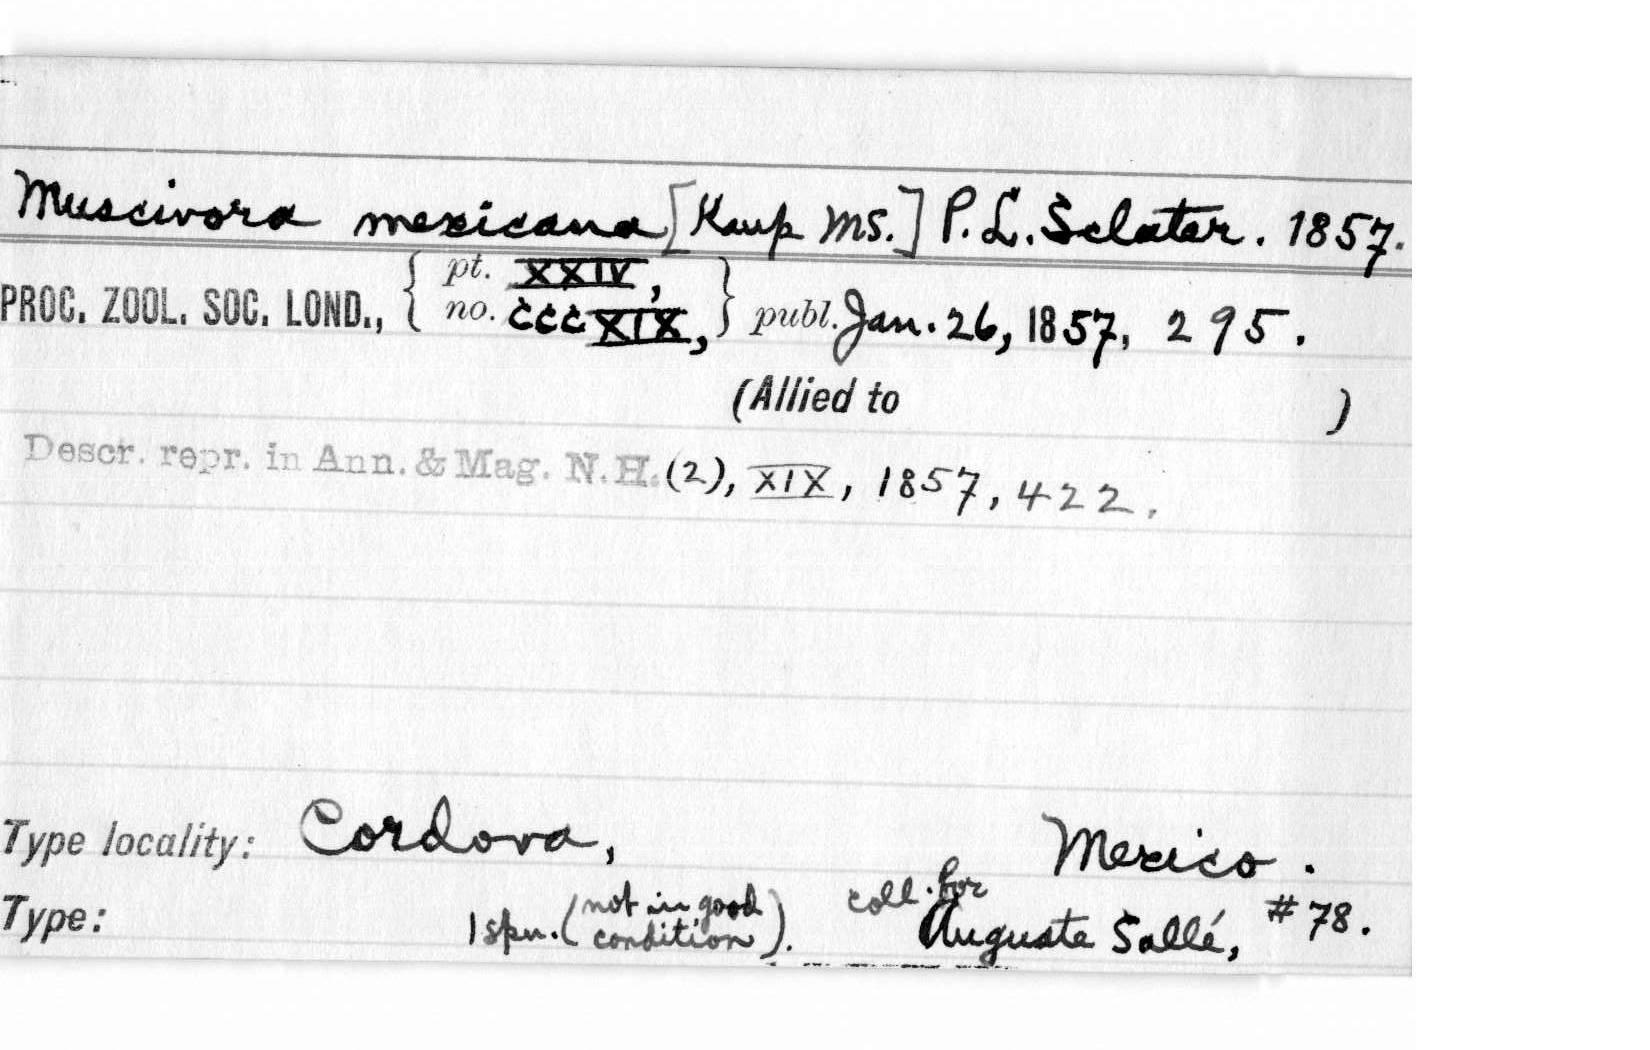 Muscivora mexicana [Kaup MS.] P. L. Sclater. 1857.
PROC. ZOOL. SOC. LOND., { pt. XXIV, no. CCCXIX, } publ. Jan. 26, 1857, 295.
(Allied to )
Descr. repr. in Ann. & Mag. N.H. (2), XIX, 1857, 422.
Type locality: Cordova, Mexico.
Type: 1 spn. (not in good condition). coll. for Auguste Sallé, #78.